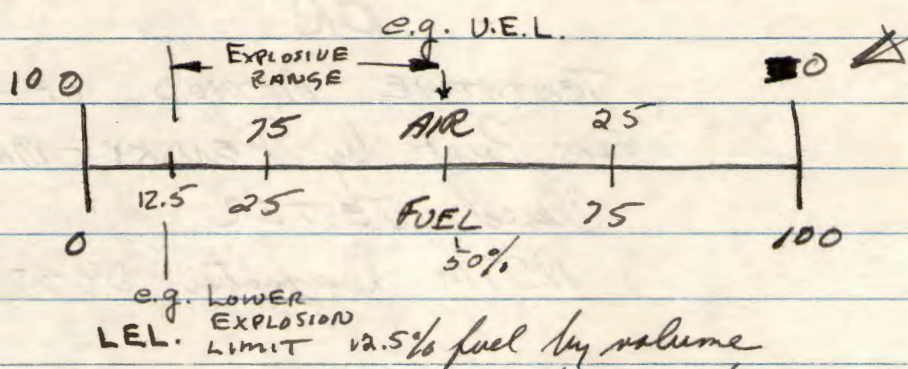 e.g. U.E.L.
EXPLOSIVE
RANGE
100 0
75 AIR 25
12.5 25 FUEL 75
0 50% 100
e.g. LOWER
EXPLOSION
LEL. LIMIT 12.5% fuel by volume